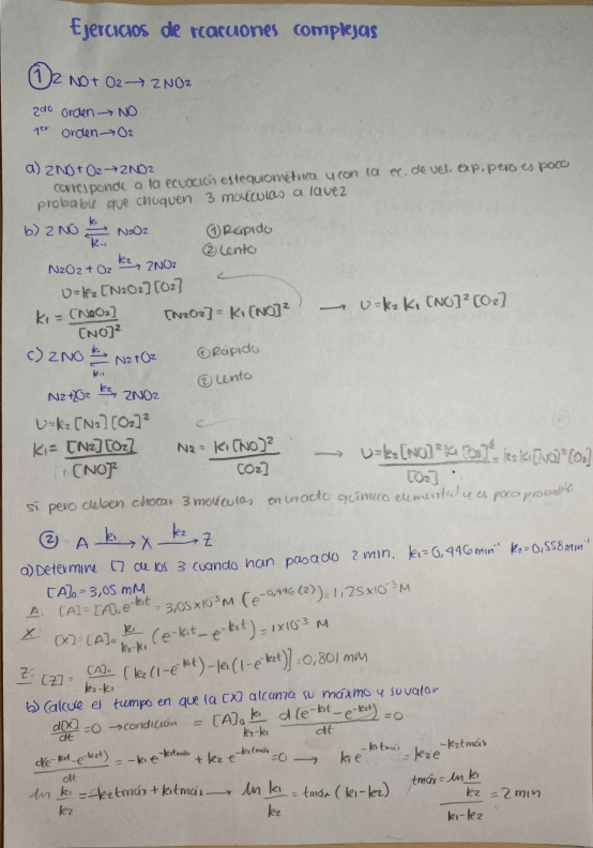 Ejercicios de reacciones complejas
① 2 NO + O₂ → 2NO₂
2do orden → NO
1er orden → O₂
a) 2NO + O₂ → 2NO₂
corresponde a la ecuación estequiométrica y con la ec. de vel. exp. pero es poco
probable que choquen 3 moléculas a la vez
b) 2 NO k₁ ⇌ k₋₁ N₂O₂ ① Rápido
② Lento
N₂O₂ + O₂ k₂→ 2NO₂
υ=k₂ [N₂O₂][O₂]
K₁ = [N₂O₂]/[NO]² [N₂O₂] = K₁[NO]² → υ=k₂ K₁ [NO]² [O₂]
c) 2NO k₁ ⇌ k₋₁ N₂+O₂ ① Rápido
② Lento
N₂+2O₂ k₂→ 2NO₂
υ=k₂ [N₂][O₂]²
K₁= [N₂][O₂]/[NO]² N₂ = K₁[NO]²/[O₂] → υ=k₂[NO]² K₁ [O₂]²/[O₂] = k₂K₁[NO]²[O₂]
si pero deben chocar 3 moléculas en un acto químico elemental y es poco probable
② A k₁→ X k₂→ Z
a) Determine [] de los 3 cuando han pasado 2 min. k₁=0,446min⁻¹ k₂=0,558min⁻¹
[A]₀ = 3,05 mM
A: [A]=[A]₀e^-k₁t = 3,05x10⁻³M (e^-0,446(2))=1,25x10⁻³M
X: [X]=[A]₀ k₁/k₂-k₁ (e^-k₁t - e^-k₂t) = 1x10⁻³ M
Z: [Z] = [A]₀/k₂-k₁ [k₂(1-e^-k₁t)-k₁(1-e^-k₂t)] = 0,801 mM
b) Calcule el tiempo en que la [X] alcanza su máximo y su valor
d[X]/dt =0 → condición = [A]₀ k₁/k₂-k₁ d(e^-k₁t - e^-k₂t)/dt =0
d(e^-k₁t - e^-k₂t)/dt = -k₁e^-k₁tmáx + k₂ e^-k₂tmáx =0 → k₁e^-k₁tmáx = k₂e^-k₂tmáx
ln k₁/k₂ = -k₂tmáx + k₁tmáx → ln k₁/k₂ = tmáx (k₁-k₂) tmáx = ln k₁/k₂ / k₁-k₂ = 2 min